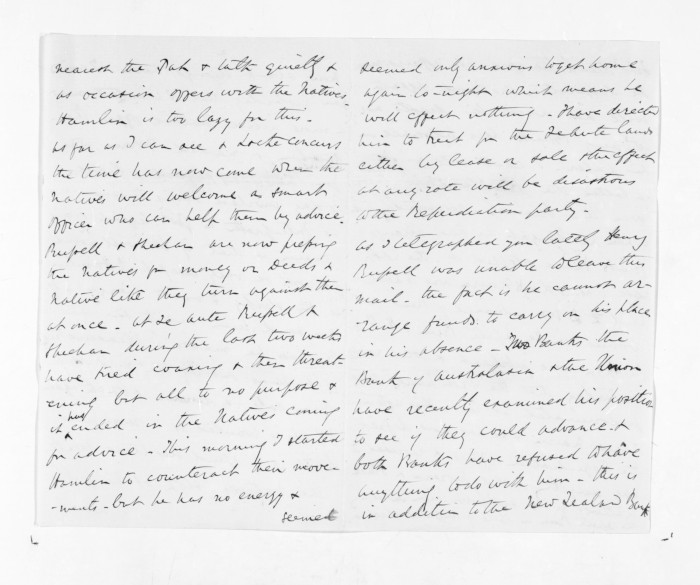 nearest the Pah & talk quietly &
as occasion offers with the Natives.
Hamlin is too lazy for this.
as far as I can see & Locke concurs
the time has now come when the
Natives will welcome a smart
officer who can help them by advice.
Russell & Sheehan are now pressing
the Natives for money or Deeds &
Native like they turn against them
at once - at Te Aute Russell &
Sheehan during the last two weeks
have tried coaxing & then threat-
-ening but all to no purpose &
it has ended in the Natives coming
for advice - This morning I started
Hamlin to counteract their move-
-ments - but he has no energy &
seemed
seemed only anxious to get home
again to-night which means he
will effect nothing - I have directed
him to treat for the Te Aute lands
either by lease or sale & the effect
at any rate will be disastrous
to the Repudiation party.
as I telegraphed you lately Henry
Russell was unable to leave this
mail - the fact is he cannot ar-
-range funds to carry on his place
in his absence - Two Banks the
Bank of Australasia & the Union
have recently examined his position
to see if they could advance &
both Banks have refused to have
anything to do with him - this is
in addition to the New Zealand Bank